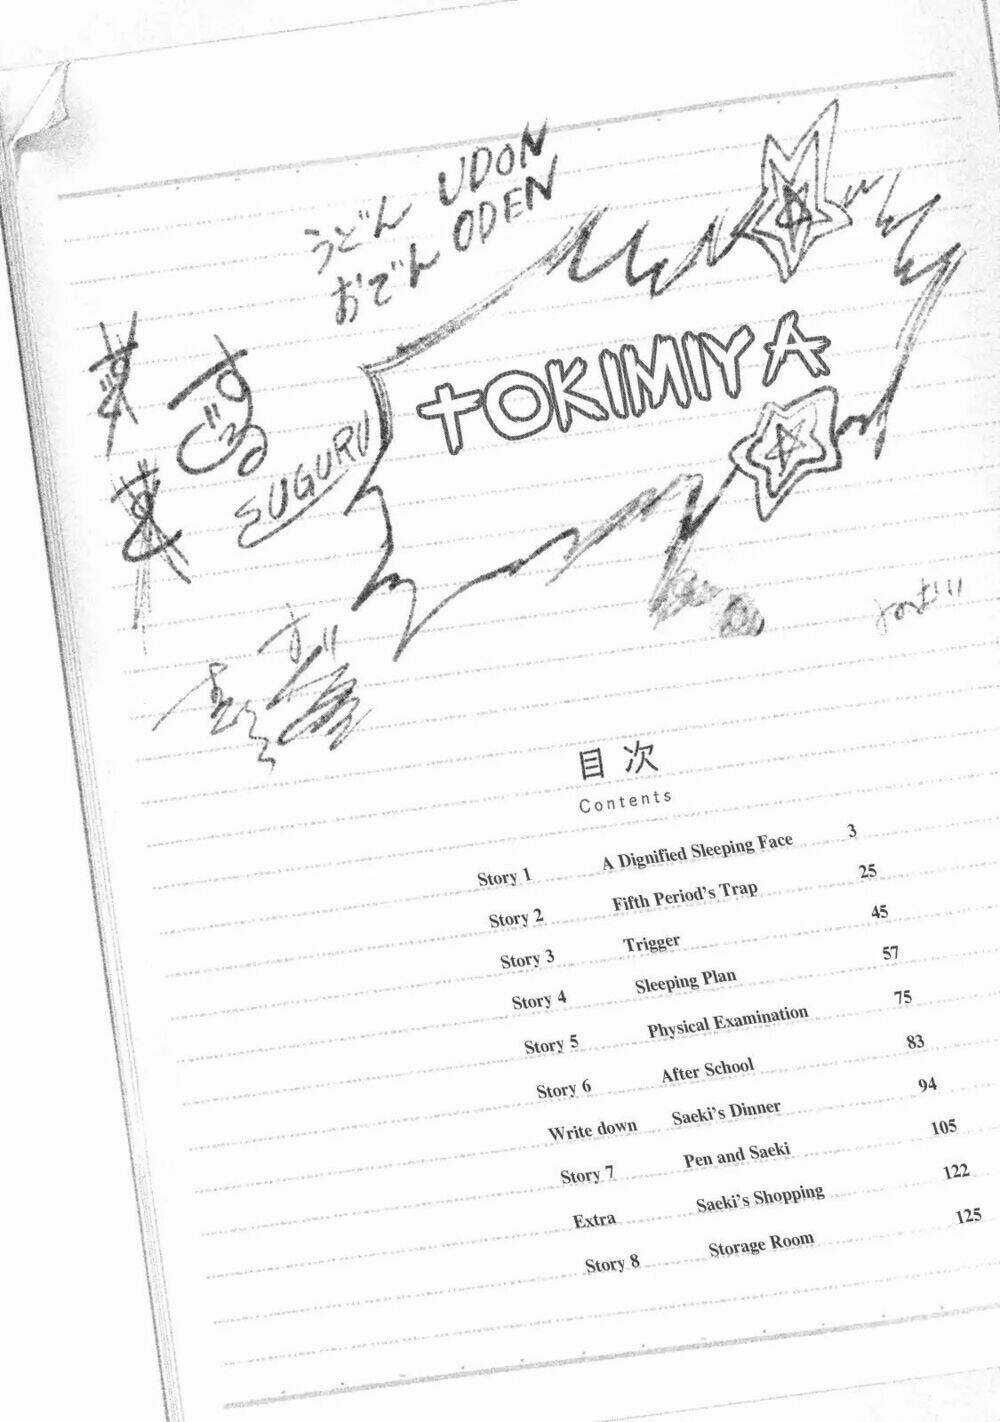 うどん UDON
おでん ODEN
TOKIMIYA
すぐる
SUGURU
目次
Contents
Story 1 A Dignified Sleeping Face 3
Story 2 Fifth Period's Trap 25
Story 3 Trigger 45
Story 4 Sleeping Plan 57
Story 5 Physical Examination 75
Story 6 After School 83
Write down Saeki's Dinner 94
Story 7 Pen and Saeki 105
Extra Saeki's Shopping 122
Story 8 Storage Room 125